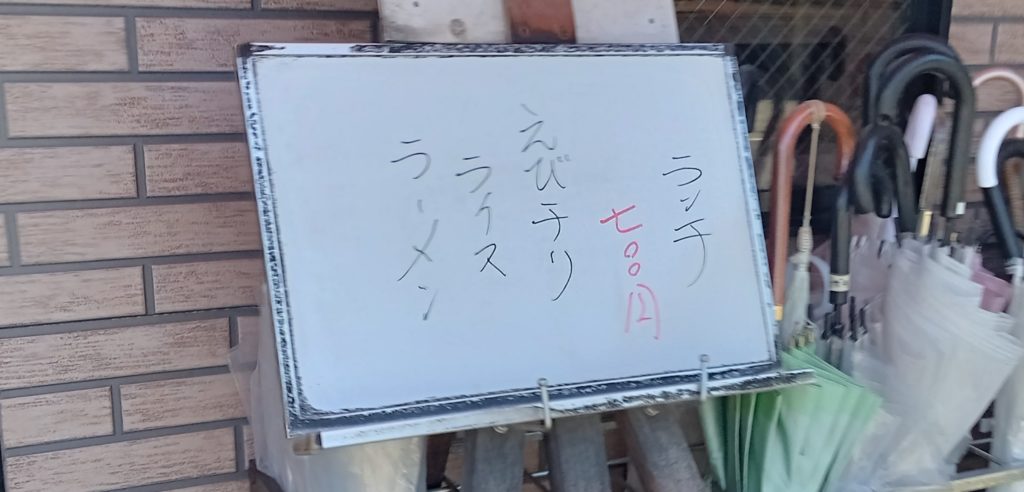 ランチ
七〇〇円
えびチリ
ライス
ラーメン